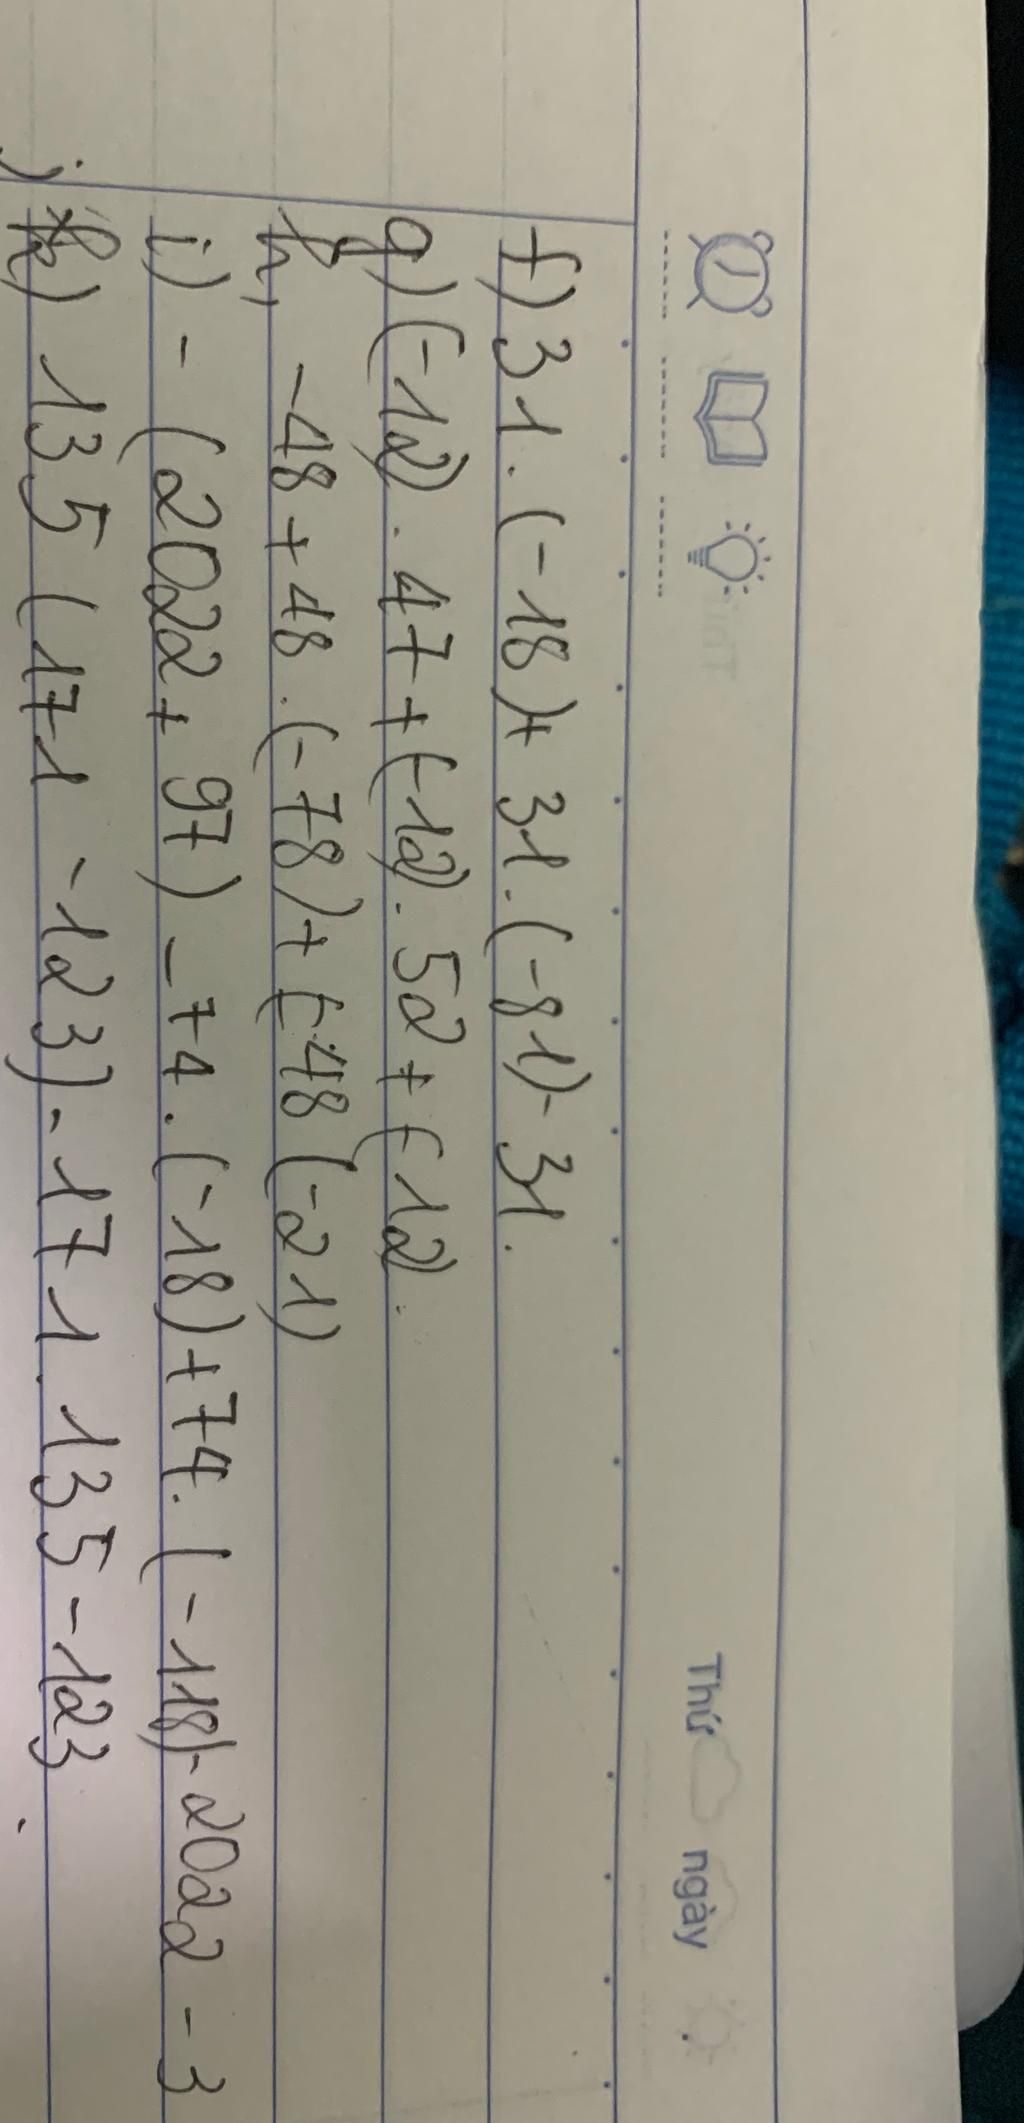 Thứ ngày
f) 31. (-18)+ 31. (-81)- 31.
g) (-12). 47 + (-12). 52 + (-12).
h, -48 + 48 . (-78) + (-48 (-21)
i) - (2022 + 97) - 74 . (-18) + 74. (-118)- 2022 - 3
j) 135 (171 - 123) - 171. 135 - 123